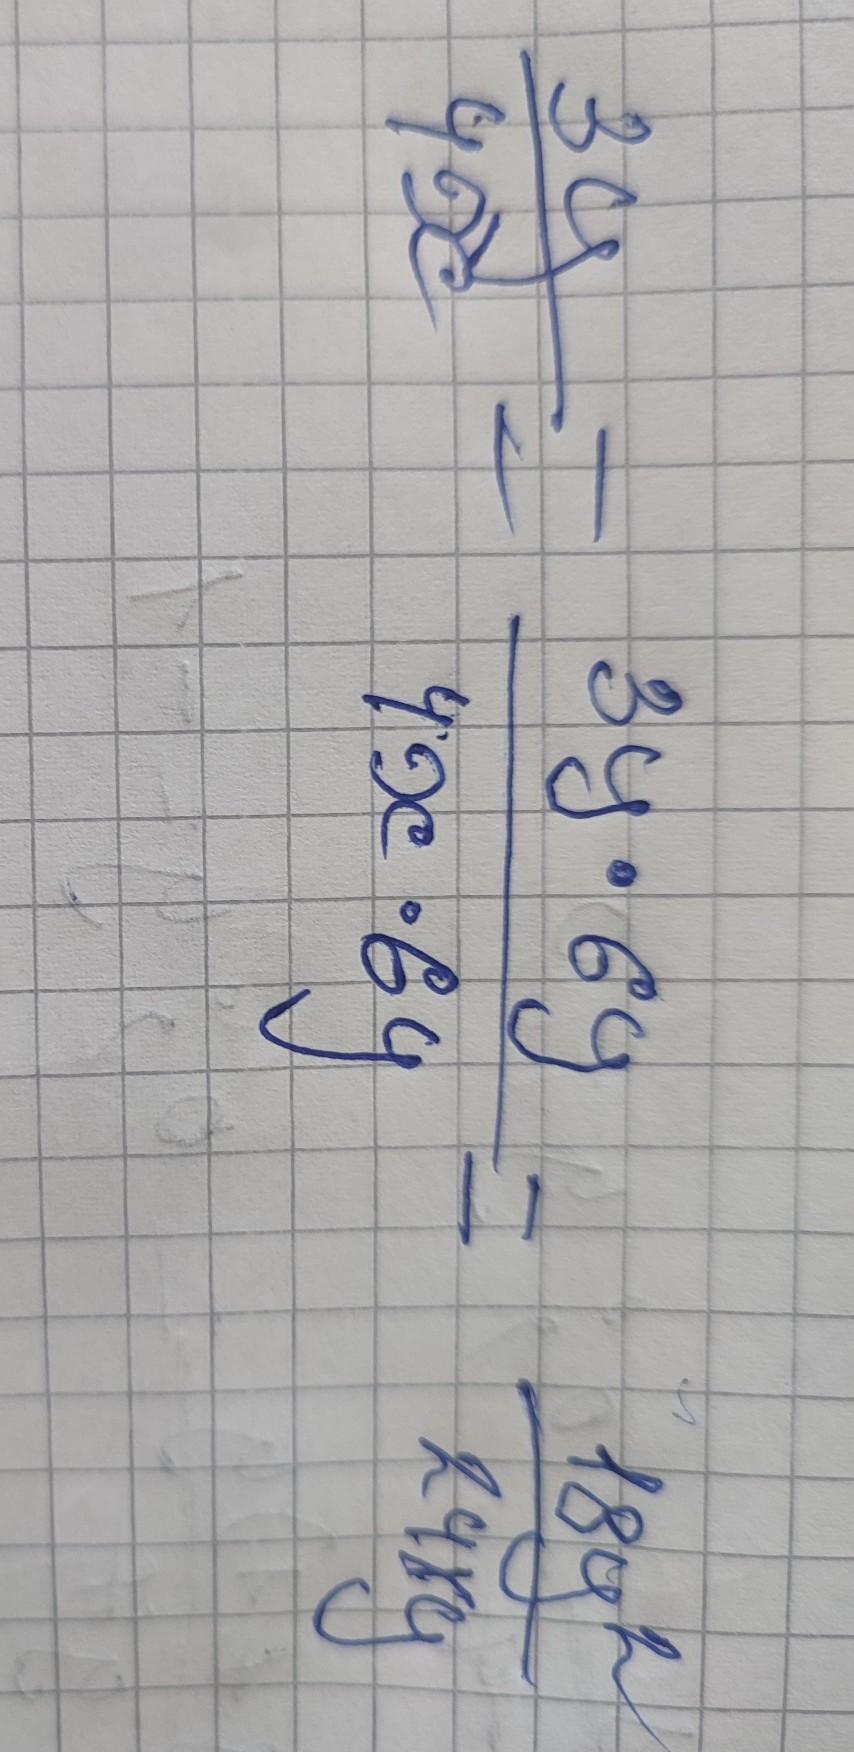 3y/4x = 3y · 6y/4x · 6y = 18y²/24xy